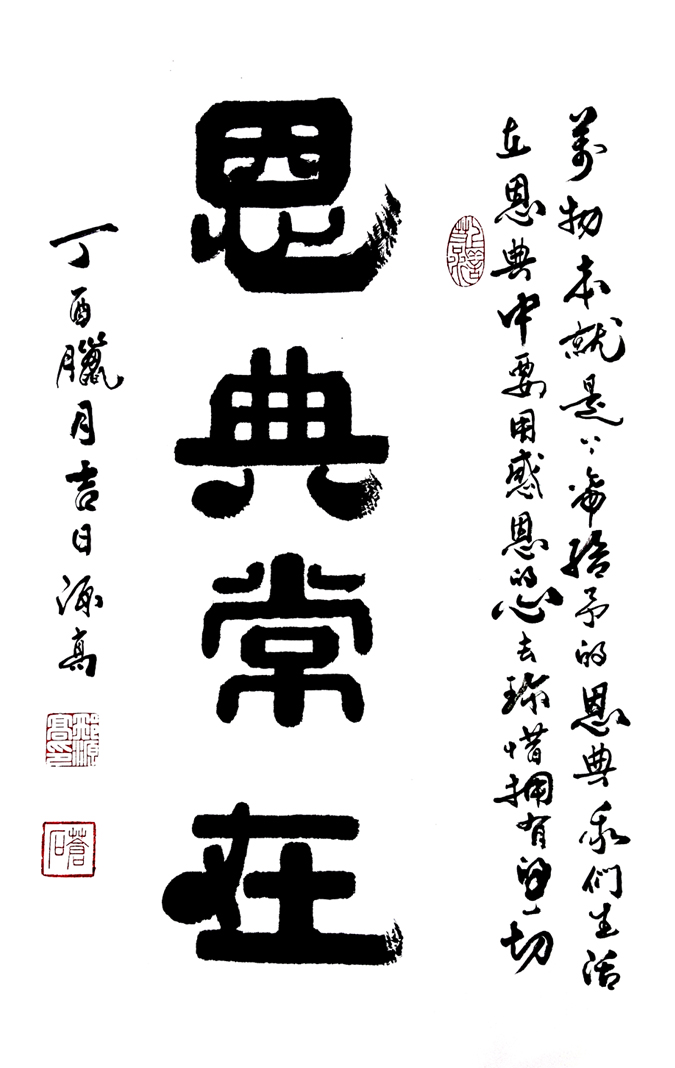 萬物本就是上帝给予的恩典我们生活
在恩典中要用感恩的心去珍惜拥有的一切
恩典常在
丁酉臘月吉日源高
蒼石